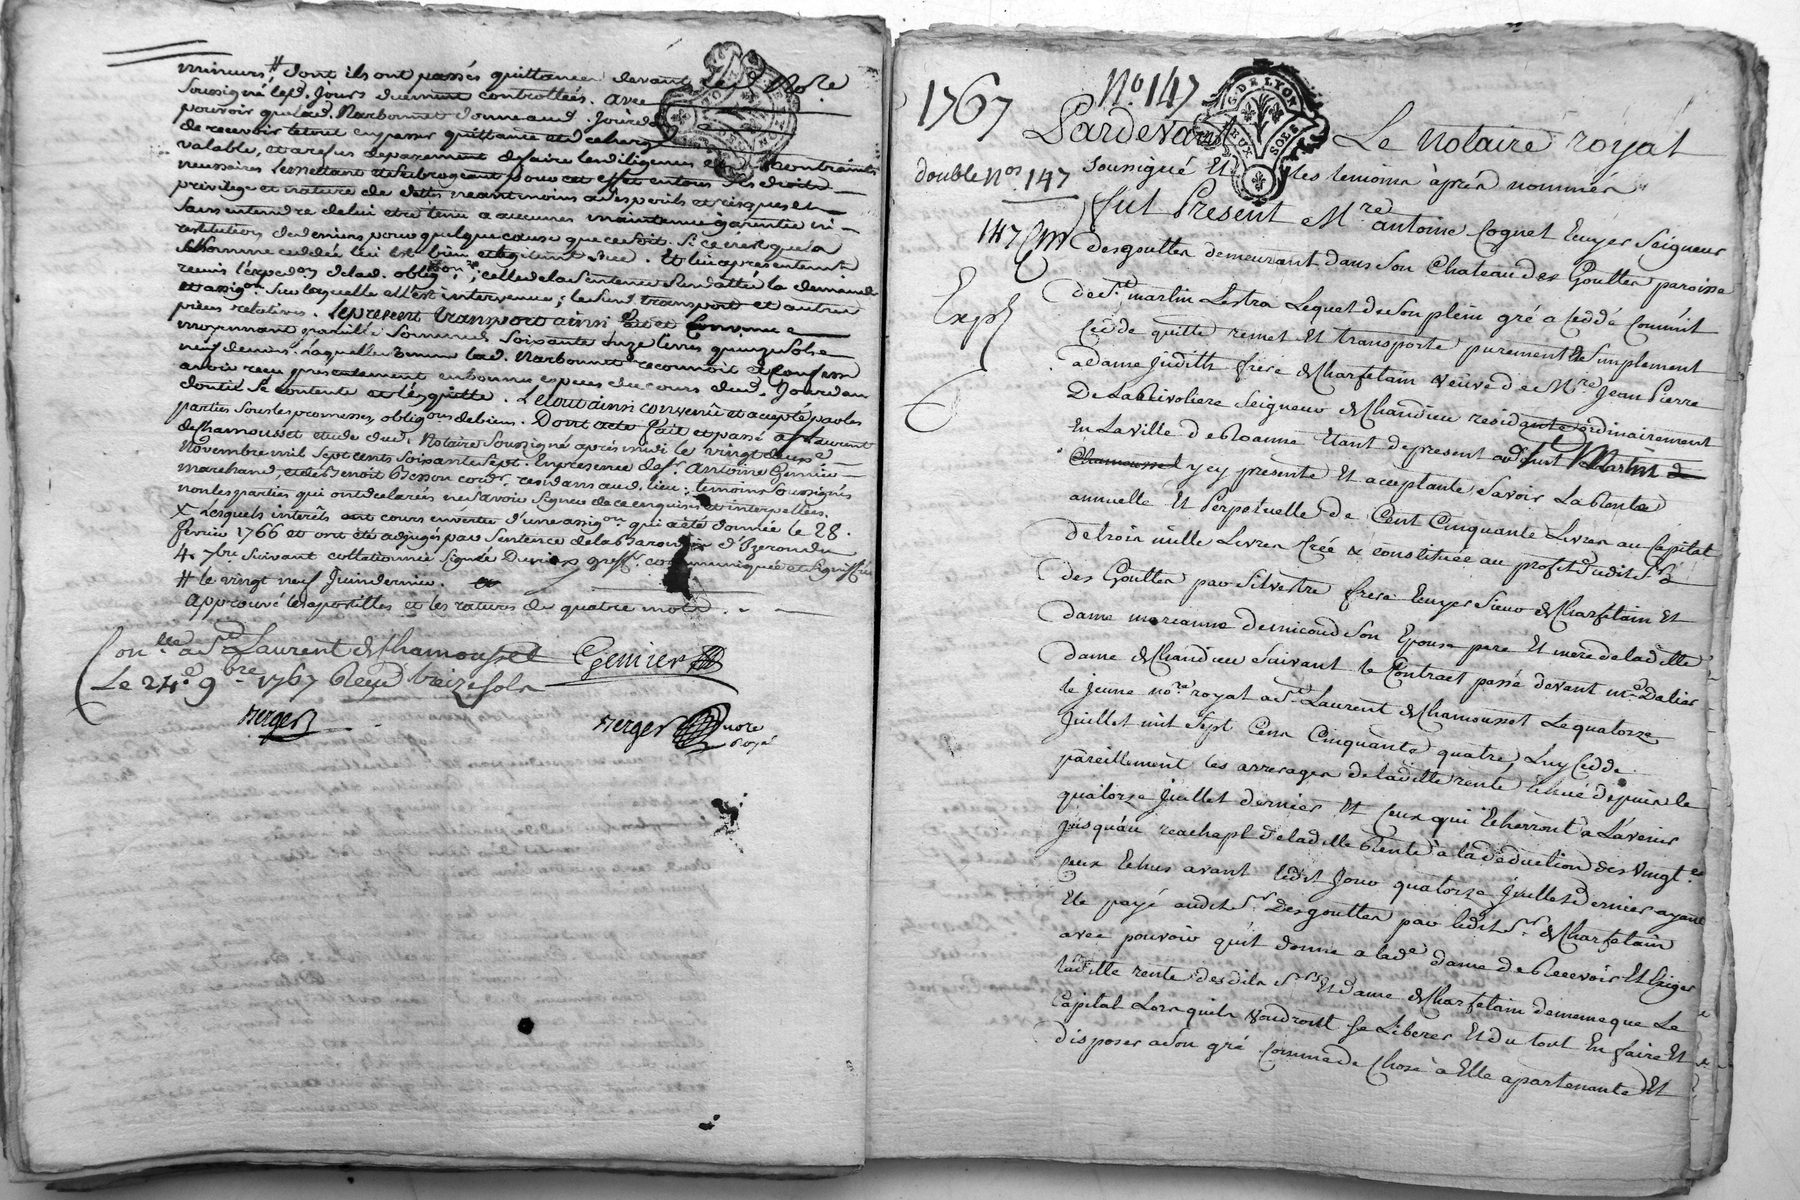 mineurs # dont ils ont passés quittances devant le Nore
soussigné lesd. jours duement controllées. avec
pouvoir quelad. Narbonnet donne aud. Jourdan
de recevoir le tout en passer quittance et decharge
valable, et a refus de payement de faire les diligences et contraintes
necessaires le mettant et subrogeant pour cet effet en tous ses droits
privilege et nature de dette neantmoins a ses perils et risques et
sans entendre de lui etre tenu a aucunes maintenue garentie ni
restitution de deniers, pour quelque cause que ce soit. Si ce n'est que la
somme ceddée lui est bien et legitimement due. Et lui a presentement
remis l'expedon delad. obligon; celle de la sentence sus datée la demande
et assigon sur laquelle elle est intervenue; le susd. transport et autres
pieces relatives. le present transport ainsi fait et convenu
moyennant pareille somme de soixante onze livres quinze sols
neuf deniers. laquelle somme lad. Narbonnet reconnoit et confesse
avoir reçu presentement en bonnes especes du cours dud. Jourdan
dont il se contente et l'en quitte. le tout ainsi convenu et accepté par les
parties sous les promesses, obligons de biens. Dont acte fait et passé a St Laurent
de Chamousset etude dud. Notaire soussigné après midi le vingt deuxe
Novembre mil sept cents soixante sept. En presence de sr. Antoine Genier
marchand, et de Benoit Besson cordr. residants aud. lieu, temoins soussignés
non les parties qui ont declarés ne savoir signer de ce enquises et interpellées.
X lesquels interêts ont cours en vertu d'une assigon qui a été donnée le 28.
fevrier 1766 et ont été adjugés par sentence de la Baronie d'Yzeron du
4. 7bre suivant collationnée signée greffr. communiquée et signiffiée
# le vingt neuf juin dernier.
approuvé les apostilles et les ratures de quatre mots.
Con.lée a St Laurent de Chamousset
Le 24e 9bre 1767 Reçu treize sols
Genier
Berger
Berger nore
royal
1767
No 147
double Nos 147
147
Exp
G. DE LYON
DEUX SOLS
Pardevant Le Notaire royal
soussigné Et les temoins après nommés
fut Present Mre antoine Cognet Ecuyer Seigneur
desgouttes demeurant dans son Chateau des Gouttes paroisse
de St martin Lestra Lequel de son plein gré a Ceddé Comme il
Cedde quitte remet Et transporte purement Et simplement
a dame judith frere de Charfetain veuve de Mre Jean Pierre
De La Rivoliere Seigneur de Chandieu residante ordinairement
En La ville de Roanne Etant de present
Chamousset y cy presente Et aceptante Savoir La Rente
annuelle Et Perpetuelle de Cent Cinquante Livres au Capital
de trois mille Livres Créé & constituée au profit dudit Sr
des Gouttes par Silvestre frere Ecuyer Sieur de Charfetain Et
dame marianne demicoud son Epouse pere Et mere de ladille
dame de Chandieu suivant le Contract passé devant me Dalier
le jeune nore royal a St Laurent de Chamousset Le quatorze
juillet mil sept Cens Cinquante quatre, Luy Cedde
pareillement les arrerages de ladille rente Echue depuis le
quatorze juillet dernier Et Ceux qui Echerront a L'avenir
jusqu'au reachapt de ladille Rente à la deduction des vingte
ceux Echus avant ledit jour quatorze juillet dernier ayant
Ete payé audit Sr Desgouttes par ledit Sr de Charfetain
avec pouvoir qu'il donne a lade dame de Recevoir Et Exiger
ladille rente desdits Srs Et dame de Charfetain de meme que Le
Capital Lors qu'ils voudront se Liberer Et du tout En faire Et
disposer a son gré Comme de Chose à Elle apartenante Et